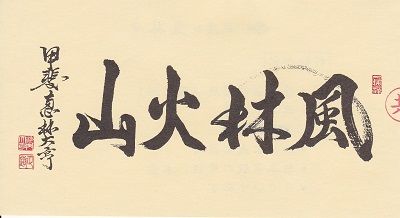 風林火山
甲斐恵林大亨